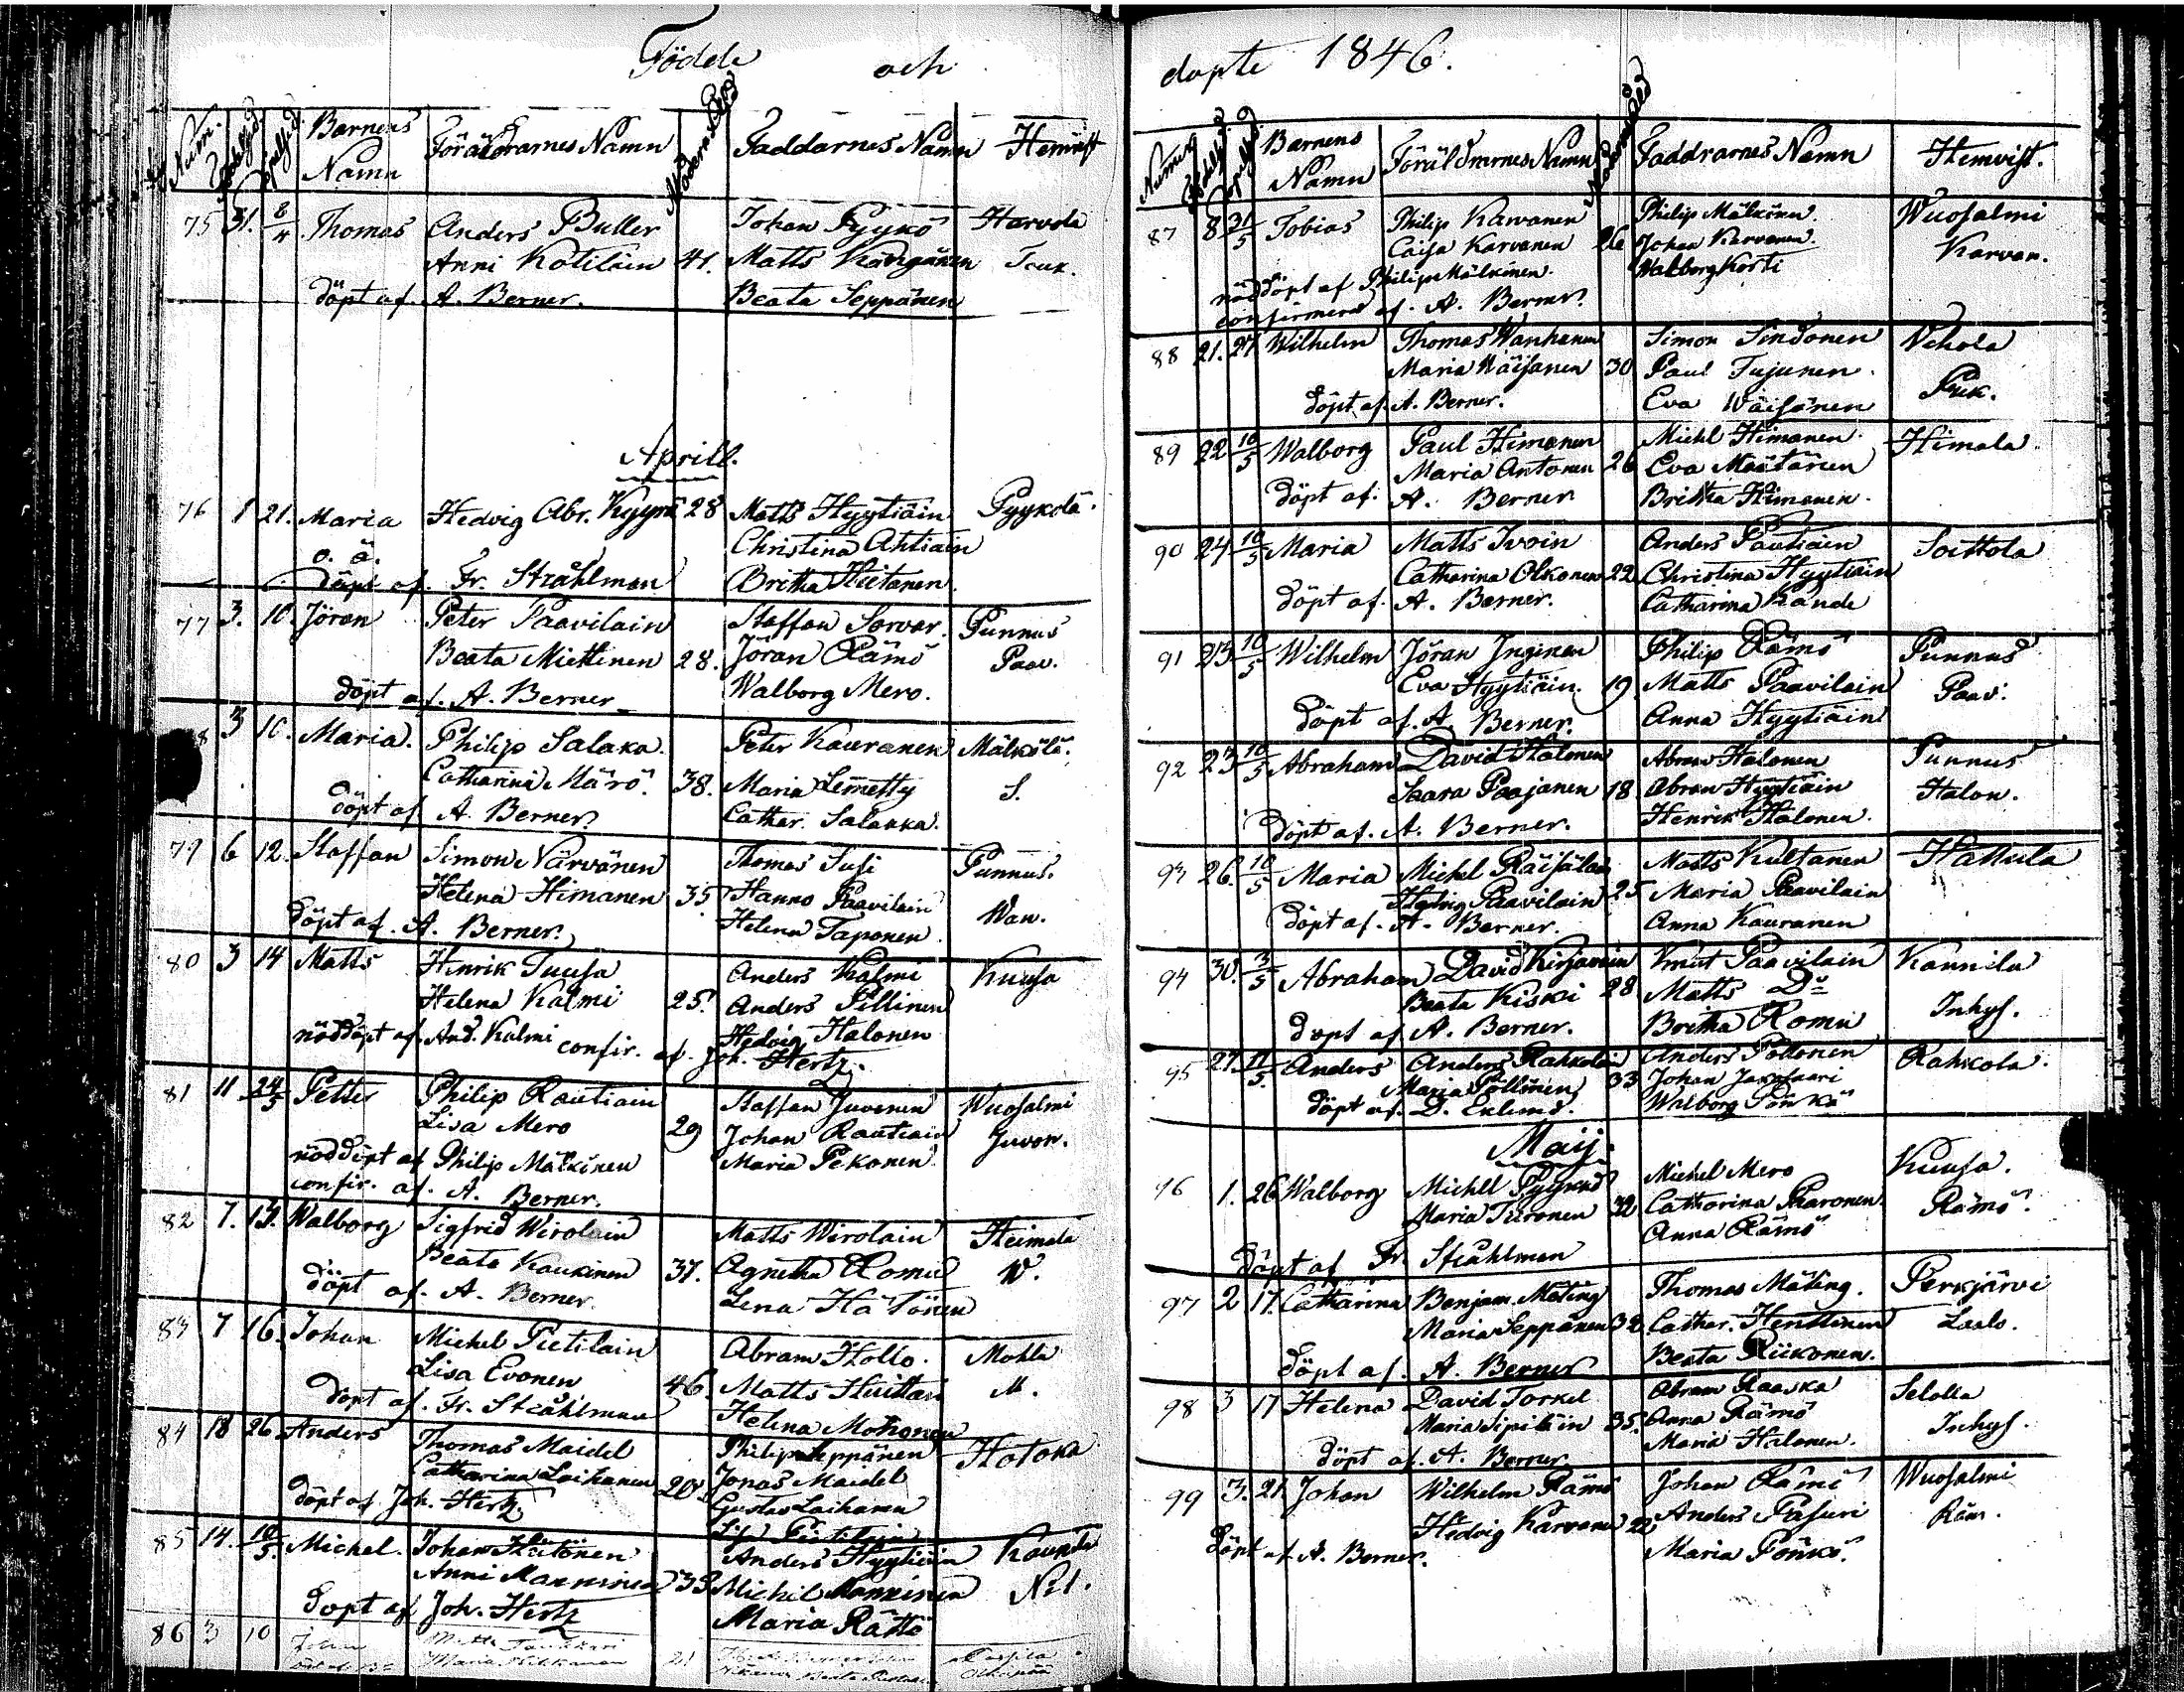 Födde och
Num. Födelsed. Döpelsed. Barnens Namn Föräldrarnes Namn Moderns Ålder Faddarnes Namn Hemvist
75 31. 8/4 Thomas Anders Buller Johan Pyykö Harvola
Anni Kotilain 41. Matts Kängänen Tauk.
döpt af. A. Berner. Beata Seppänen
Aprill.
76 1 21. Maria Hedvig Abr. Kyyrä 28 Matts Hyytiäin Pyykölä.
o. ä. Christina Ahtiain
döpt af. Fr. Stråhlman Britha Hietanen
77 3. 10. Jöran Peter Paavilain Staffan Sorvar. Punnus
Beata Miettinen 28. Jöran Rämö Paav.
döpt af. A. Berner Walborg Mero.
8 3 10. Maria. Philip Salaka. Peter Kauranen Mälkölä.
Catharina Märö. 38. Maria Lemetty S.
döpt af A. Berner. Cathar. Salakka.
79 6 12. Staffan Simon Närvänen Thomas Susi Punnus.
Helena Himanen 35 Hanno Paavilain
döpt af. A. Berner. Helena Taponen Wan.
80 3 14 Matts Hinrik Tuusa Anders Kalmi Kuusa
Helena Kalmi 25. Anders Pillinen
nöddöpt af. And. Kalmi confir. af. Joh. Hertz. Hedvig Halonen
81 11 24/5 Petter Philip Rautiain Staffan Juvonen Wuosalmi
Lisa Mero 29 Johan Rautiain Juvon.
nöddöpt af Philip Mälkinen Maria Pekonen
confir. af. A. Berner.
82 7. 13. Walborg Sigfrid Wirolain Matts Wirolain Heimala
Beata Kaukinen 37. Agnetha Romu W.
döpt af. A. Berner. Lena Hätönen
83 7 16. Johan Michel Pietilain Abram Hollo. Mohla
Lisa Evonen 46. Matts Huittari M.
döpt af. Fr. Stråhlman Helena Mohonen
84 18 26 Anders Thomas Maidel Philip Seppänen Hotoka
Catharina Laihanen 20 Jonas Maidel
döpt af Joh. Hertz. Gustas Laihanen
85 14. 10/5. Michel. Johan Hätönen Anders Hyytiäin Kaunila
Anni Manninen 33 Michel Manninen Nil.
döpt af Joh. Hertz Maria Rättö
86 3 10 Johan Matts
Maria 21
dopte 1846.
Num. Födelsed. Döpelsed. Barnens Namn Föräldrarnes Namn Faddrarnes Namn Hemvist.
87 8 31/5 Tobias Philip Karvanen Philip Mälkinen Wuosalmi
Caisa Karvanen 26 Johan Karvanen. Karvan.
nöddöpt af Philip Mälkinen. Walborg Korti
confirmerad af. A. Berner.
88 21. 27 Wilhelm Thomas Wanhanen Simon Sindonen Wehola
Maria Wäisänen 30 Paul Tujunen. Puk.
döpt af. A. Berner. Eva Wäisänen
89 22 10/5 Walborg Paul Himanen Michl Himanen Himala
Maria Antonen 26 Eva Määtänen
döpt af. A. Berner Britha Himanen.
90 24 10/5 Maria Matts Ivoin Anders Pautiain Soittola
Catharina Olkonen 22 Christina Hyytiäin
döpt af. A. Berner. Catharina Kande
91 23 10/5 Wilhelm Jöran Inginen Philip Rämö Punnus
Eva Hyytiäin. 19 Matts Paavilain Paav.
döpt af. A. Berner. Anna Hyytiäin
92 23 10/5 Abraham David Halonen Abram Halonen Punnus
Saara Paajanen 18 Abram Hyytiäin Halon.
döpt af. A. Berner. Henrik Halonen.
93 26. 10/5 Maria Michel Räisälain Matts Kultanen Hattula
Hedvig Paavilain 25 Maria Paavilain
döpt af. A. Berner. Anna Kauranen
94 30. 3/5 Abraham David Kirjavain Knut Paavilain Kannila
Beata Kiski 28 Matts Do Inhys.
döpt af A. Berner. Britha Romu
95 27. 11/5. Anders Anders Rahkolain Anders Pöllönen Rahkola.
Maria Pöllönen 33 Johan
döpt af. D. Eklund. Walborg Pönkö
Maij.
96 1. 26 Walborg Michel Pyykkö Michel Mero Kuusa.
Maria Turonen 32 Catharina Paronen. Rämö.
Anna Rämö
döpt af Fr. Stråhlman
97 2 17. Catharina Benjam. Mäting Thomas Mäting. Perkjärvi
Maria Seppänen 32 Cathar. Henttinen Laslo.
döpt af. A. Berner Beata Riikonen.
98 3 17 Helena David Torkel Abram Raaska Selolla
Maria Sipiläin 35. Anna Rämö Inhys.
döpt af. A. Berner Maria Halonen.
99 3. 21. Johan Wilhelm Rämö Johan Rämö Wuosalmi
Hedvig Karvanen 22 Anders Pasuri Räm.
döpt af A. Berner. Maria Pönkö.